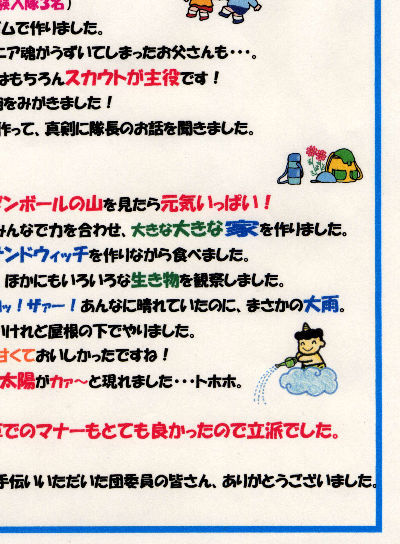 験入隊3名)
ムで作りました。
ニア魂がうずいてしまったお父さんも・・・。
はもちろんスカウトが主役です!
をみがきました!
作って、真剣に隊長のお話を聞きました。
ダンボールの山を見たら元気いっぱい!
みんなで力を合わせ、大きな大きな家を作りました。
サンドウィッチを作りながら食べました。
ほかにもいろいろな生き物を観察しました。
ッ!ザァー!あんなに晴れていたのに、まさかの大雨。
いけれど屋根の下でやりました。
甘くておいしかったですね!
太陽がカァ〜と現れました・・・トホホ。
でのマナーもとても良かったので立派でした。
手伝いいただいた団委員の皆さん、ありがとうございました。